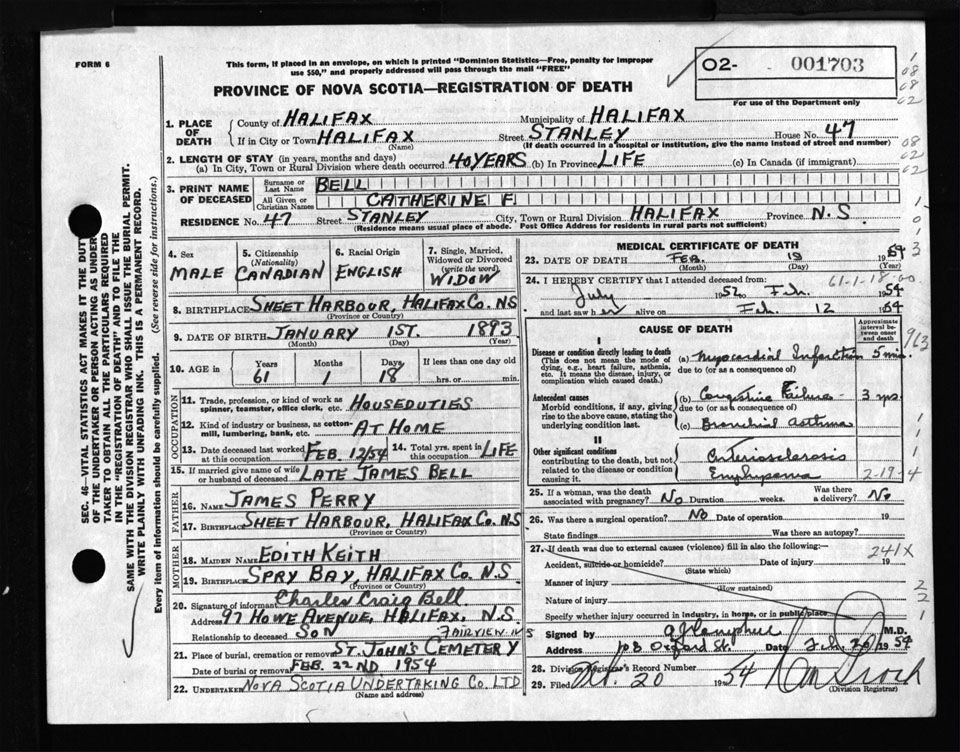 FORM 6
This form, if placed in an envelope, on which is printed "Dominion Statistics—Free, penalty for improper
use $50," and properly addressed will pass through the mail "FREE"
02- 001703
For use of the Department only
PROVINCE OF NOVA SCOTIA—REGISTRATION OF DEATH
1. PLACE OF DEATH
County of HALIFAX Municipality of HALIFAX
If in City or Town HALIFAX (Name) Street STANLEY House No. 47
(If death occurred in a hospital or institution, give the name instead of street and number)
2. LENGTH OF STAY (in years, months and days)
(a) In City, Town or Rural Division where death occurred 40 YEARS (b) In Province LIFE (c) In Canada (if immigrant)
3. PRINT NAME OF DECEASED
Surname or Last Name BELL
All Given or Christian Names CATHERINE F.
RESIDENCE No. 47 Street STANLEY City, Town or Rural Division HALIFAX Province N.S.
(Residence means usual place of abode. Post Office Address for residents in rural parts not sufficient)
4. Sex MALE
5. Citizenship (Nationality) CANADIAN
6. Racial Origin ENGLISH
7. Single, Married, Widowed or Divorced (write the word) WIDOW
8. BIRTHPLACE SHEET HARBOUR, HALIFAX CO. NS
(Province or Country)
9. DATE OF BIRTH JANUARY 1ST. 1893
(Month) (Day) (Year)
10. AGE in Years 61 Months 1 Days 18 If less than one day old hrs. or min.
OCCUPATION
11. Trade, profession, or kind of work as spinner, teamster, office clerk, etc. HOUSEDUTIES
12. Kind of industry or business, as cotton-mill, lumbering, bank, etc. AT HOME
13. Date deceased last worked at this occupation FEB. 12/54
14. Total yrs. spent in this occupation LIFE
15. If married give name of wife or husband of deceased LATE JAMES BELL
FATHER
16. NAME JAMES PERRY
17. BIRTHPLACE SHEET HARBOUR, HALIFAX CO. N.S
(Province or Country)
MOTHER
18. MAIDEN NAME EDITH KEITH
19. BIRTHPLACE SPRY BAY, HALIFAX CO. N.S
(Province or Country)
20. Signature of informant Charles Craig Bell
Address 97 HOWE AVENUE, HALIFAX, N.S
Relationship to deceased SON FAIRVIEW
21. Place of burial, cremation or removal ST. JOHN'S CEMETERY
Date of burial or removal FEB. 22 ND 1954
22. UNDERTAKER NOVA SCOTIA UNDERTAKING CO. LTD
(Name and address)
MEDICAL CERTIFICATE OF DEATH
23. DATE OF DEATH FEB. 19 1954
(Month) (Day) (Year)
61-1-18-00
24. I HEREBY CERTIFY that I attended deceased from:
July 1952 to Feb. 1954
and last saw her alive on Feb. 12 1954
CAUSE OF DEATH
Approximate interval between onset and death
I
Disease or condition directly leading to death
(This does not mean the mode of dying, e.g., heart failure, asthenia, etc. It means the disease, injury, or complication which caused death.)
(a) Myocardial Infarction 5 min.
due to (or as a consequence of)
Antecedent causes
Morbid conditions, if any, giving rise to the above cause, stating the underlying condition last.
(b) Congestive Failure 3 ms.
due to (or as a consequence of)
(c) Bronchial Asthma
II
Other significant conditions
contributing to the death, but not related to the disease or condition causing it.
Arteriosclerosis
Emphysema 2-19-4
25. If a woman, was the death associated with pregnancy? No Duration weeks. Was there a delivery? No
26. Was there a surgical operation? No Date of operation 19
State findings Was there an autopsy?
27. If death was due to external causes (violence) fill in also the following: 241X
Accident, suicide or homicide? (State which) Date of injury 19
Manner of injury (How sustained)
Nature of injury
Specify whether injury occurred in industry, in home, or in public place
Signed by M.D.
Address 108 Oxford St. Date Feb. 20 1954
28. Division Registrar's Record Number
29. Filed 20 1954
(Division Registrar)
SEC. 46—VITAL STATISTICS ACT MAKES IT THE DUTY
OF THE UNDERTAKER OR PERSON ACTING AS UNDER-
TAKER TO OBTAIN ALL THE PARTICULARS REQUIRED
IN THE "REGISTRATION OF DEATH" AND TO FILE THE
SAME WITH THE DIVISION REGISTRAR WHO SHALL ISSUE THE BURIAL PERMIT.
WRITE PLAINLY WITH UNFADING INK. THIS IS A PERMANENT RECORD.
Every item of information should be carefully supplied. (See reverse side for instructions.)